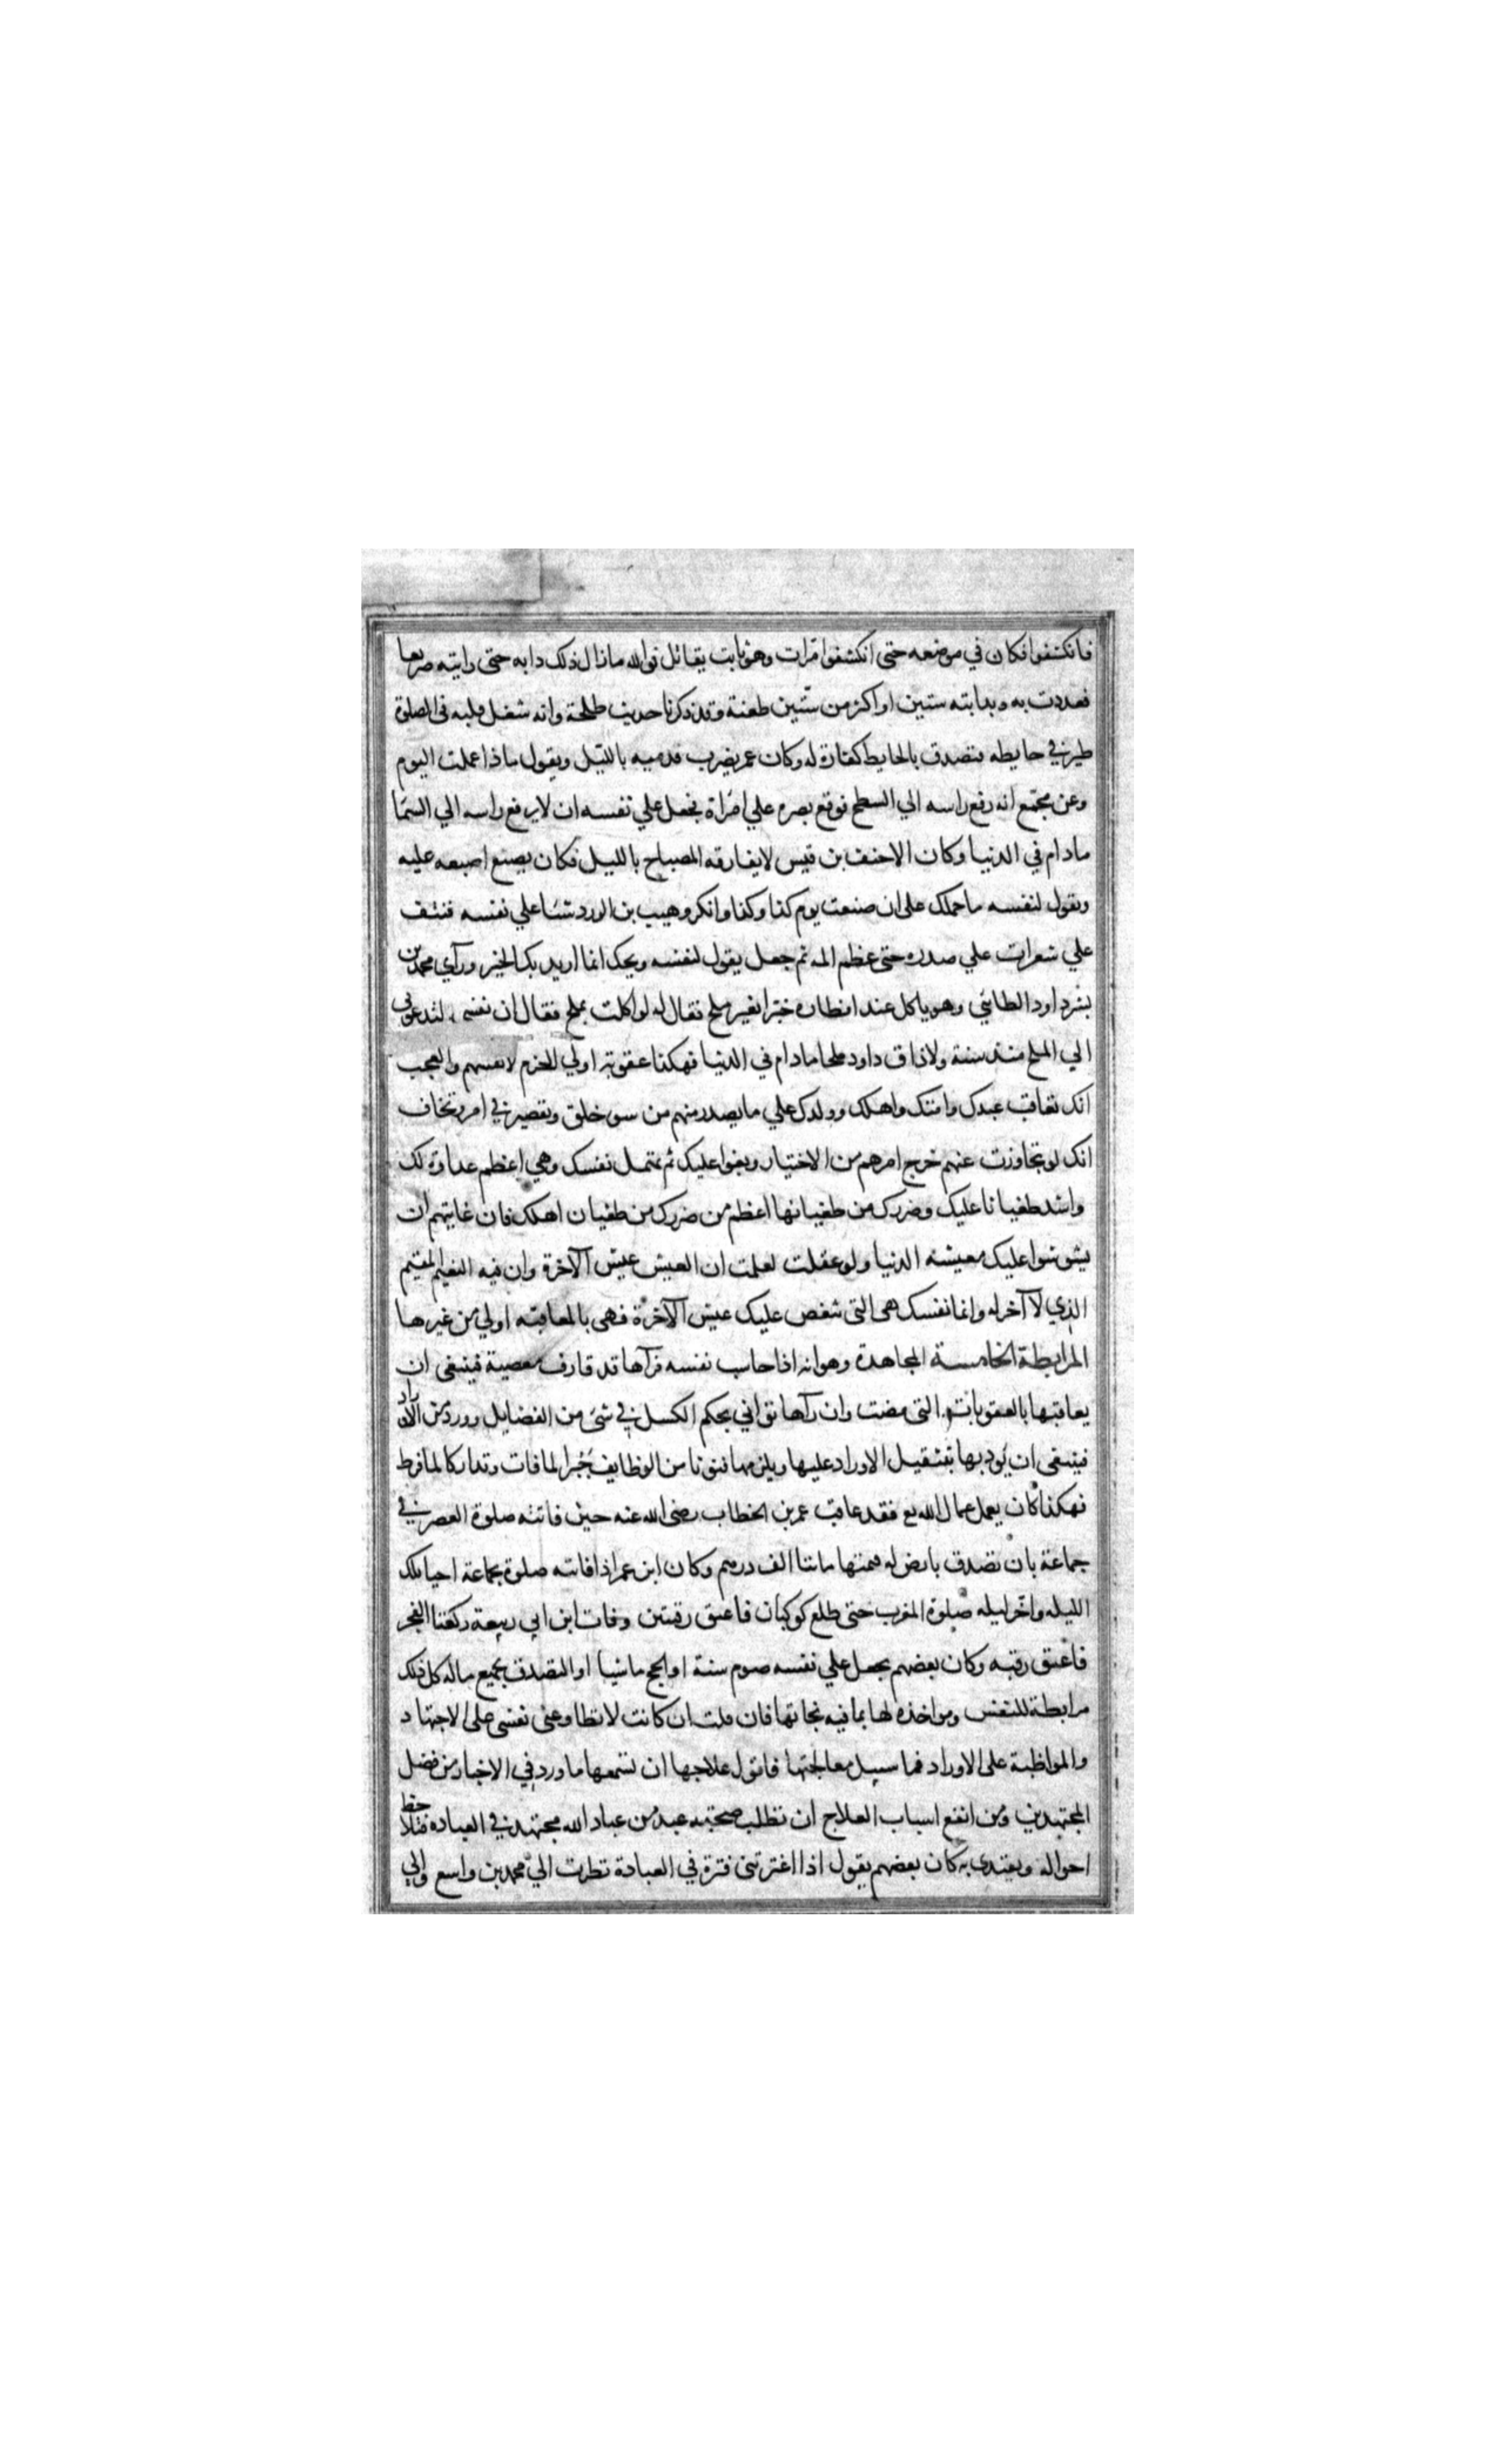 فانكشفوا فكان في موضعه حتى انكشفوا مرات وهو ثابت يقاتل فوالله مازال ذلك دابه حتى رايته صريعا
فعددت به وبدابته ستين او اكثر من ستين طعنة وقد ذكرنا حديث طلحة وانه شغل قلبه في الصلوة
طير في حايطه فتصدق بالحايط كفارة له وكان عمر يضرب قدميه بالليل ويقول ماذا عملت اليوم
وعن مجمع انه رفع راسه الي السطح فوقع بصره علي امراة فجعل علي نفسه ان لا يرفع راسه الي السما
مادام في الدنيا وكان الاحنف بن قيس لا يفارقه المصباح بالليل فكان يضع اصبعه عليه
ويقول لنفسه ما حملك على ان صنعت يوم كذا وكذا وانكر وهيب بن الورد شيئا علي نفسه فنتف
علي شعرات علي صدره حتى عظم المه ثم جعل يقول لنفسه ويحك انما اريد بك الخير وراي محمد بن
بشر داود الطائي وهو ياكل عند افطاره خبزا بغير ملح فقال له لو اكلت بملح فقال ان نفسي لتدعوني
الي الملح منذ سنة ولا ذاق داود ملحا مادام في الدنيا فهكذا عقوبة اولي الحزم لانفسهم والعجب
انك تعاقب عبدك وامتك واهلك وولدك علي ما يصدر منهم من سو خلق وتقصير في امر وتخاف
انك لو تجاوزت عنهم خرج امرهم من الاختيار وبغوا عليك ثم تهمل نفسك وهي اعظم عداوة لك
واشد طغيانا عليك وضررك من طغيانها اعظم من ضررك من طغيان اهلك فان غايتهم ان
يشوشوا عليك معيشة الدنيا ولو عقلت لعلمت ان العيش عيش الآخرة وان فيه النعيم المقيم
الذي لا آخر له وانما نفسك هي التي تنغص عليك عيش الآخرة فهي بالمعاقبة اولي من غيرها
المرابطة الخامسة المجاهدة وهو انه اذا حاسب نفسه فرآها قد قارف معصية فينبغي ان
يعاقبها بالعقوبات التي مضت وان رآها تواني بحكم الكسل في شئ من الفضايل وورد من الاوراد
فينبغي ان يودبها بتثقيل الاوراد عليها ويلزمها فنونا من الوظايف جبرا لما فات وتداركا لما فرط
فهكذا كان يعمل عمال الله تع فقد عاقب عمر بن الخطاب رضى الله عنه حين فاتته صلوة العصر في
جماعة بان تصدق بارض له قيمتها مائتا الف درهم وكان ابن عمر اذا فاتته صلوة بجماعة احيا تلك
الليله واخر ليله صلوة المغرب حتى طلع كوكبان فاعتق رقبتين وفات ابن ابي ربيعة ركعتا الفجر
فاعتق رقبه وكان بعضهم يجعل علي نفسه صوم سنة او الحج ماشيا او التصدق بجميع ماله كل ذلك
مرابطة للنفس ومواخذه لها بما فيه نجاتها فان قلت ان كانت لا تطاوعني نفسي على الاجتهاد
والمواظبة على الاوراد فما سبيل معالجتها فاقول علاجها ان تسمعها ما ورد في الاخبار من فضل
المجتهدين ومن انفع اسباب العلاج ان تطلب صحبة عبد من عباد الله مجتهد في العباده فتلاحظ
احواله ويقتدي به كان بعضهم يقول اذا اعترتني فترة في العبادة نظرت الي محمد بن واسع والي